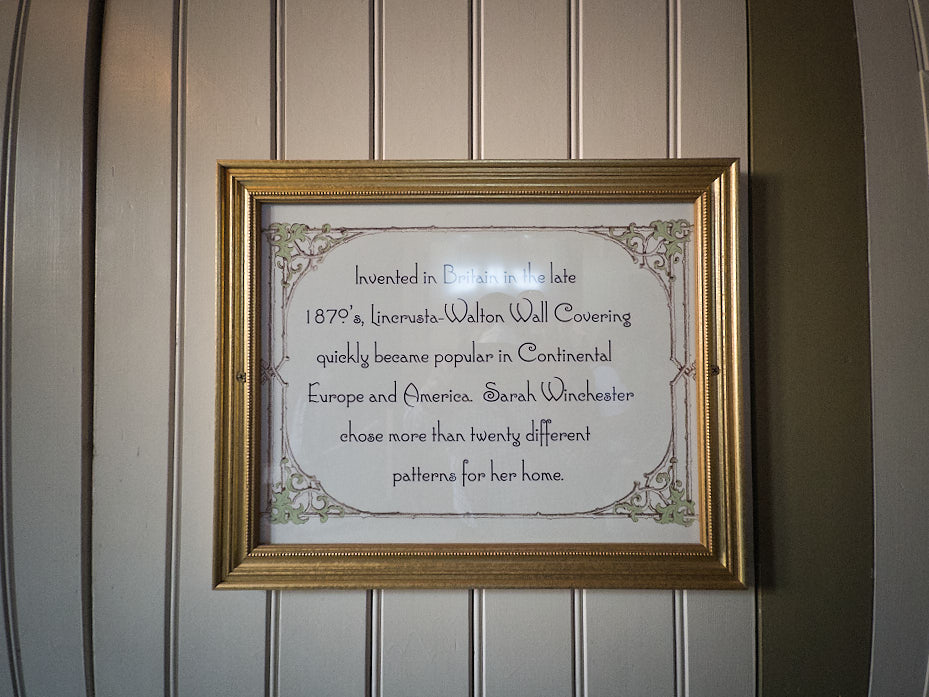 Invented in Britain in the late
1870's, Lincrusta-Walton Wall Covering
quickly became popular in Continental
Europe and America. Sarah Winchester
chose more than twenty different
patterns for her home.